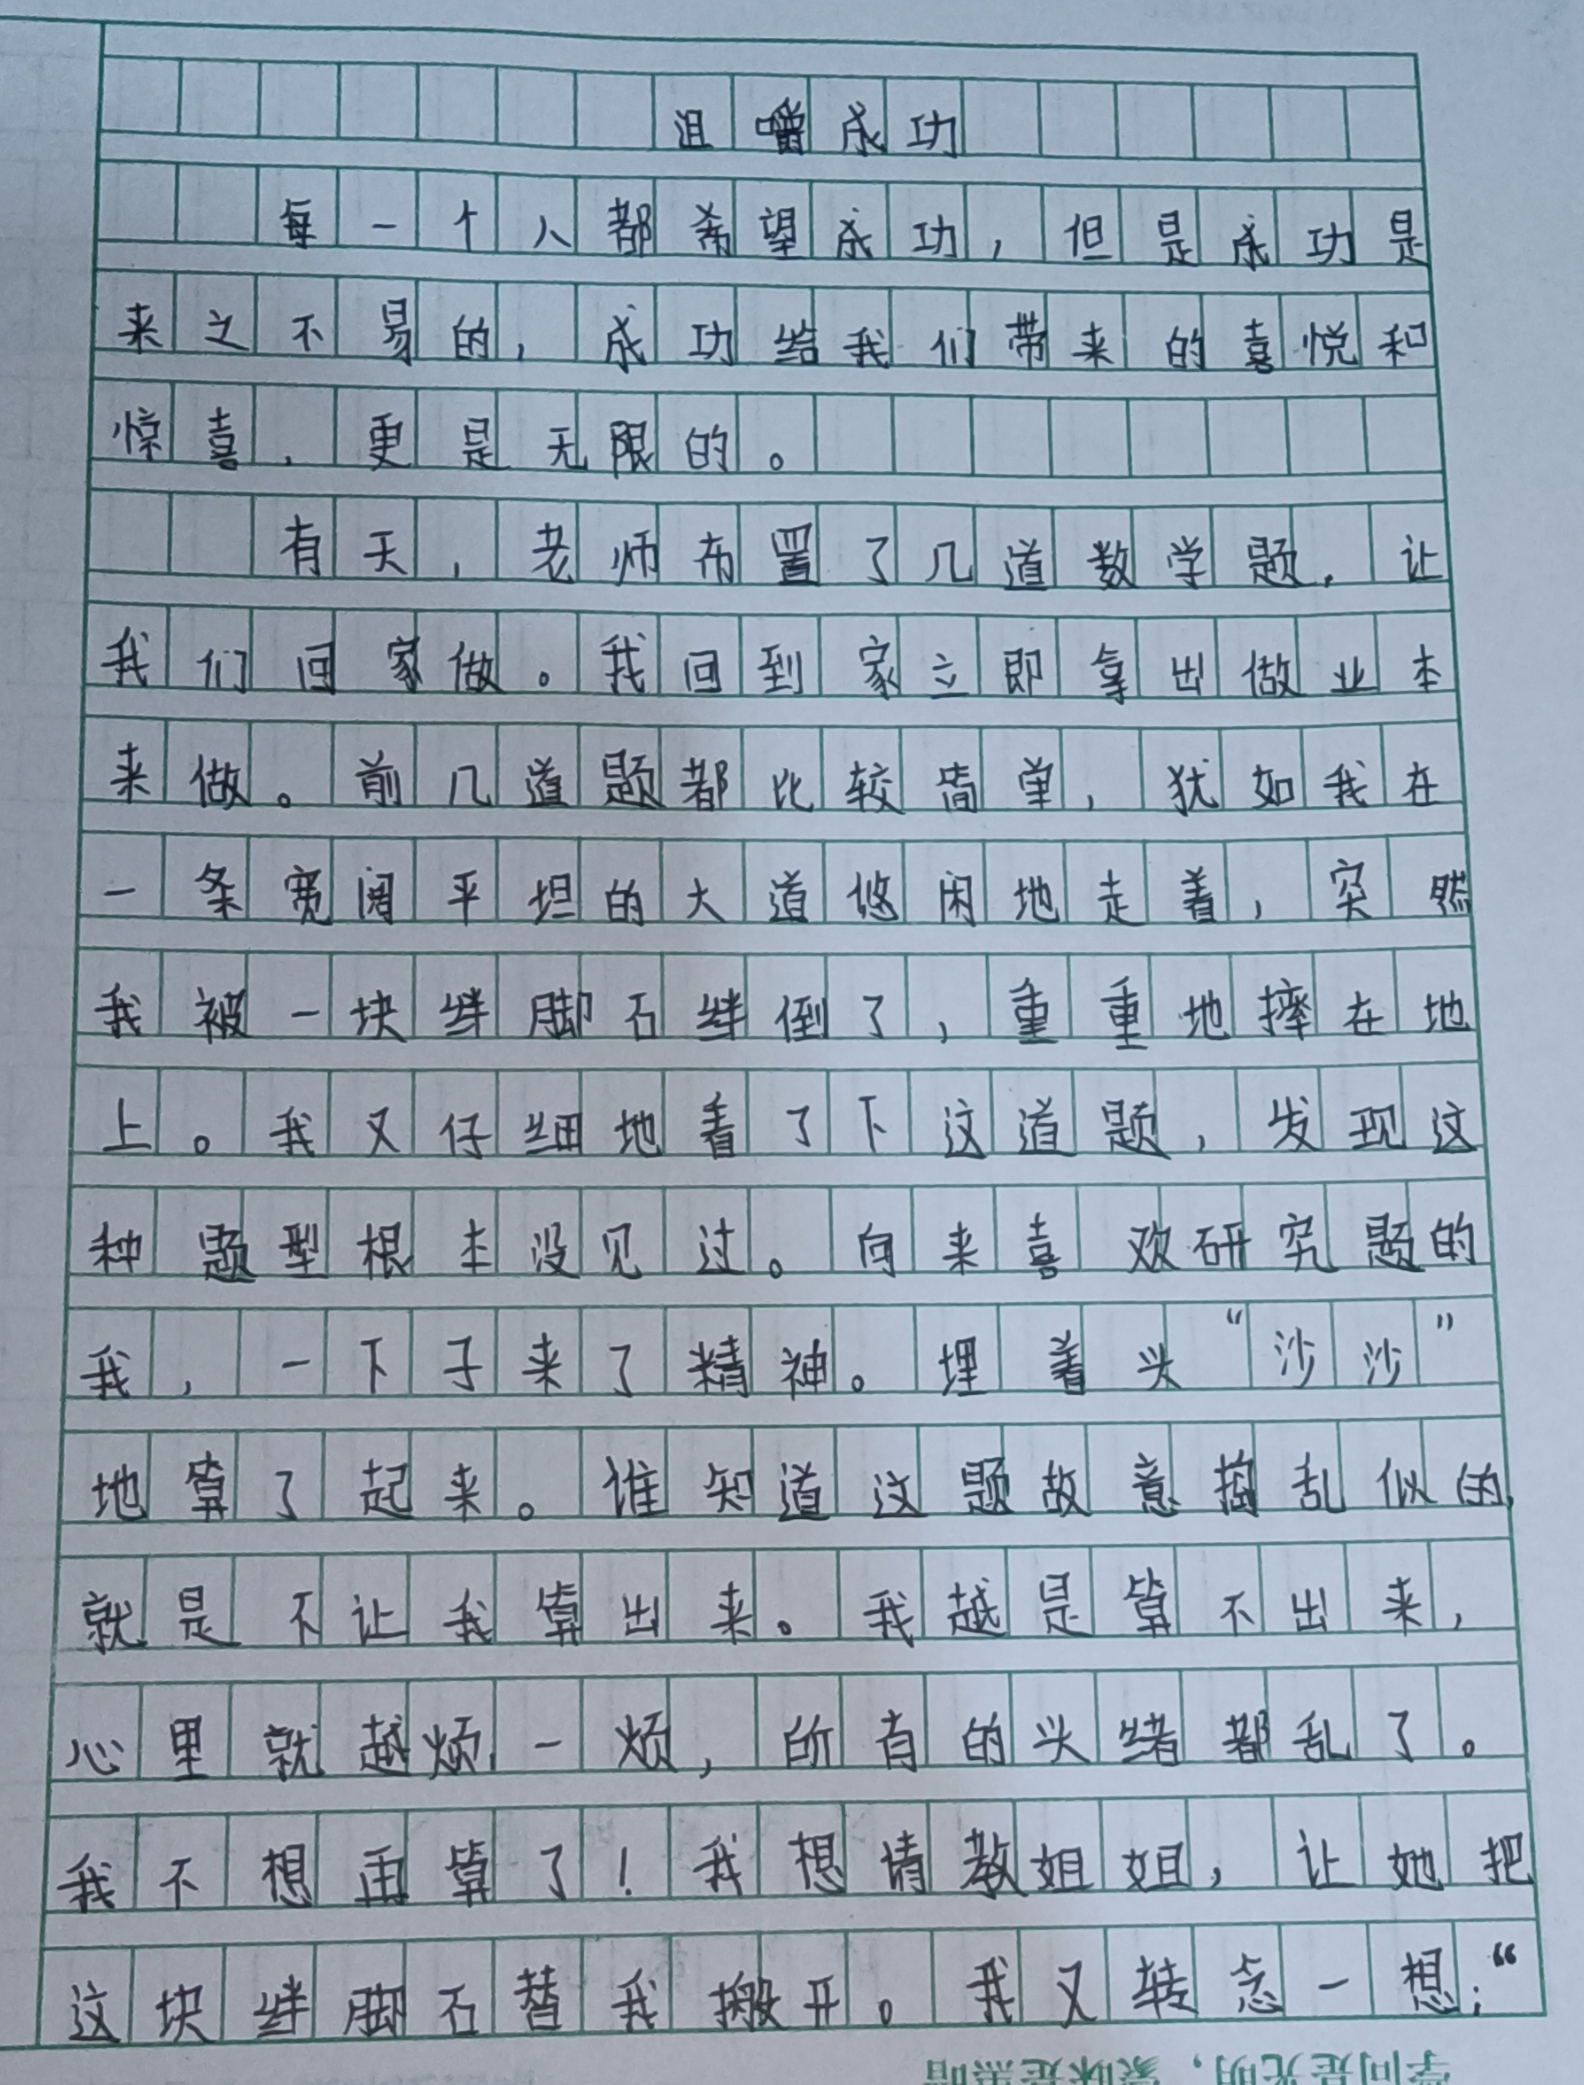 沮嚼成功
每一个人都希望成功，但是成功是
来之不易的，成功给我们带来的喜悦和
惊喜，更是无限的。
有天，老师布置了几道数学题，让
我们回家做。我回到家立即拿出做业本
来做。前几道题都比较简单，犹如我在
一条宽阔平坦的大道悠闲地走着，突然
我被一块绊脚石绊倒了，重重地摔在地
上。我又仔细地看了下这道题，发现这
种题型根本没见过。向来喜欢研究题的
我，一下子来了精神。埋着头“沙沙”
地算了起来。谁知道这题故意捣乱似的，
就是不让我算出来。我越是算不出来，
心里就越烦一烦，所有的头绪都乱了。
我不想再算了！我想请教姐姐，让她把
这块绊脚石替我搬开。我又转念一想：“
学问是光明，蒙昧是黑暗